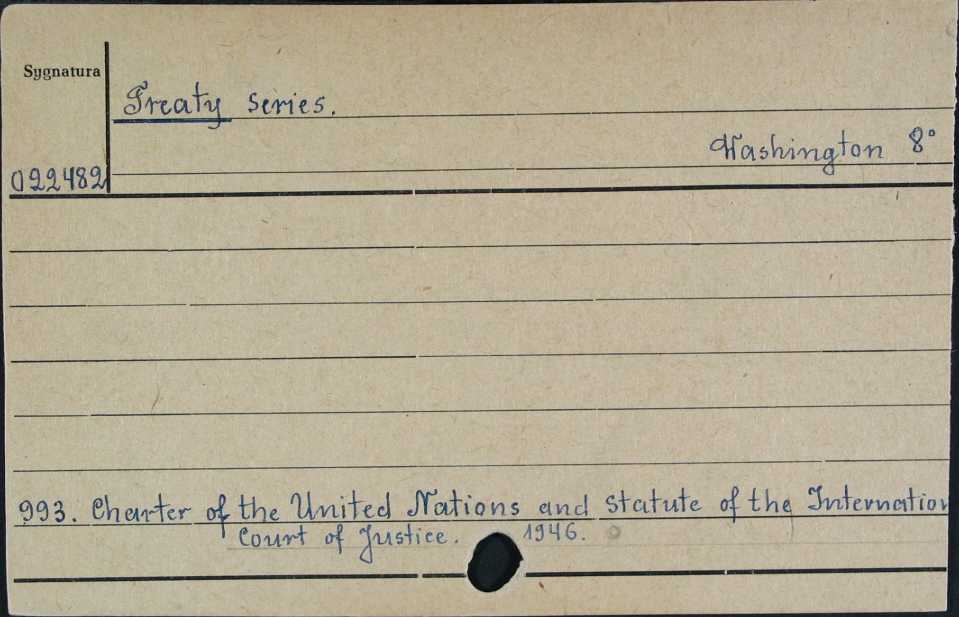 Sygnatura
Treaty series.
Washington 8°
022482
993. Charter of the United Nations and statute of the Internation
Court of Justice. 1946.